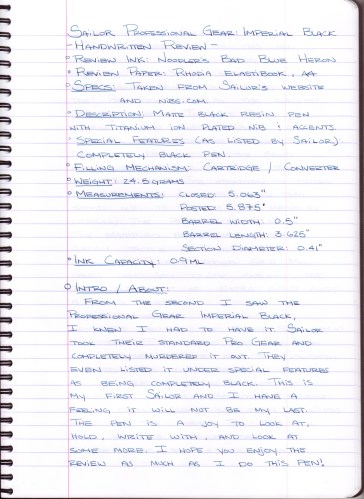 Sailor Professional Gear: Imperial Black
- Handwritten Review -
° Review Ink: Noodler's Bad Blue Heron
° Review Paper: Rhodia Elastibook, A4
° Specs: Taken from Sailor's website
and nibs.com.
° Description: Matte black resin pen
with titanium ion plated nib & accents.
° Special Features (as listed by Sailor):
Completely black pen.
° Filling Mechanism: Cartridge / Converter
° Weight: 24.5 grams
° Measurements: Closed: 5.063"
Posted: 5.875"
Barrel Width: 0.5"
Barrel Length: 3.625"
Section Diameter: 0.41"
° Ink Capacity: 0.9 mL
° Intro / About:
From the second I saw the
Professional Gear Imperial Black,
I knew I had to have it. Sailor
took their standard Pro Gear and
completely murdered it out. They
even listed it under special features
as being completely black. This is
my first Sailor and I have a
feeling it will not be my last.
The pen is a joy to look at,
hold, write with, and look at
some more. I hope you enjoy the
review as much as I do this pen!